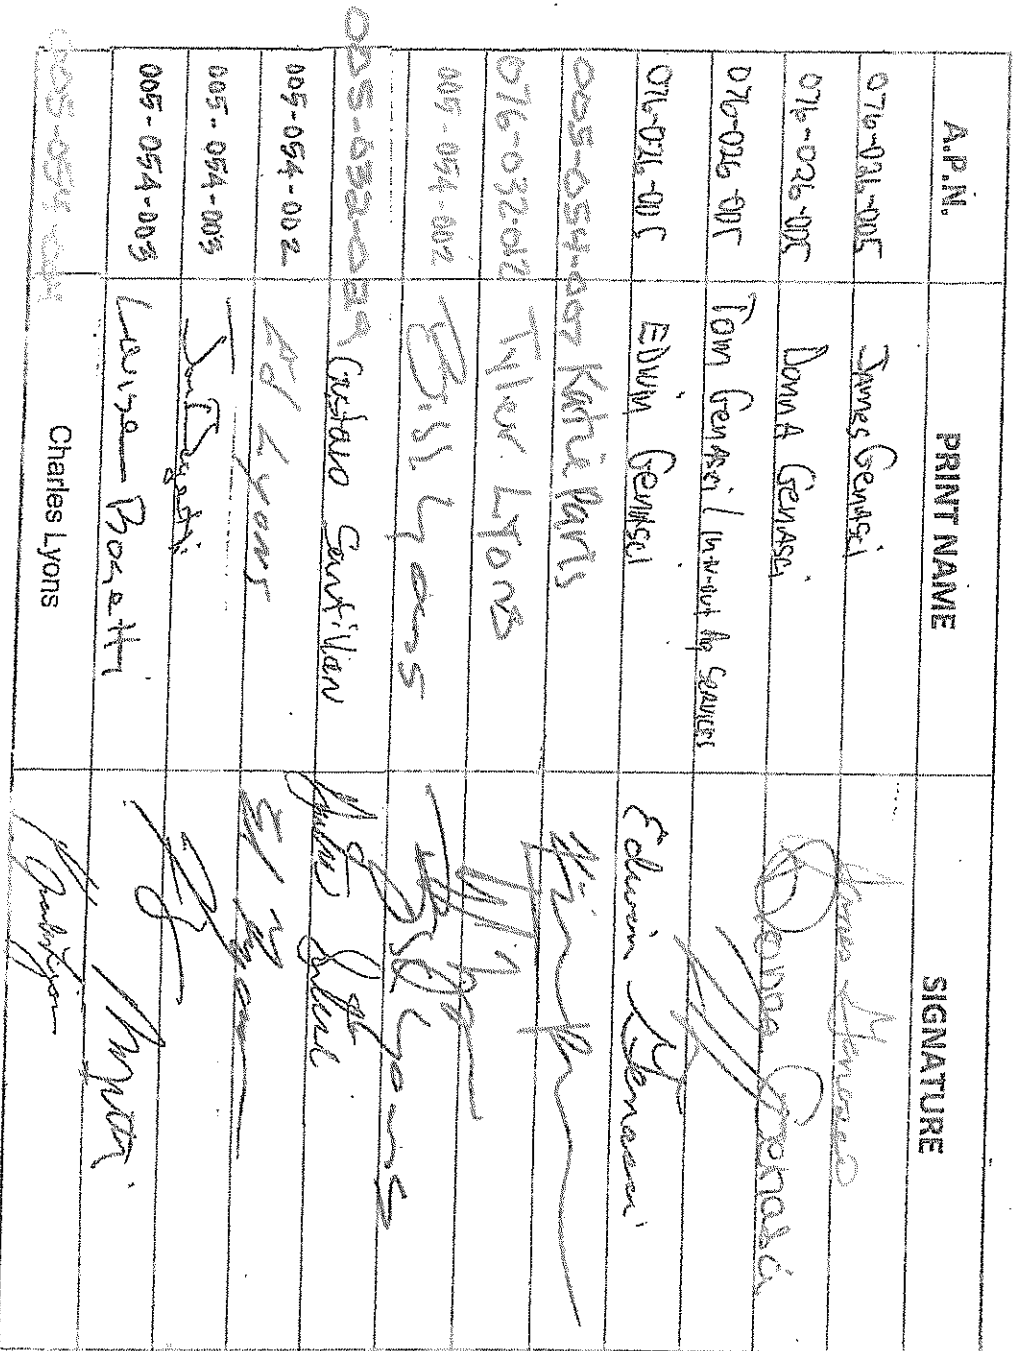 A.P.N. PRINT NAME SIGNATURE
076-026-005 James Genasci James Genasci
076-026-005 DonnA GenAsci Donna Genasci
076-026-005 Tom GenAsci / In-N-Out Ag Services
076-026-005 EDwin GenAsci Edwin Genasci
005-054-007 Katie Paris
076-032-012 Tyler Lyons
005-054-002 Bill Lyons Bill Lyons
005-032-029 Gustavo Santillan
005-054-002 Ed Lyons Ed Lyons
005-054-003
005-054-003 Luisa Bogetti
005-054-004 Charles Lyons Charles Lyons